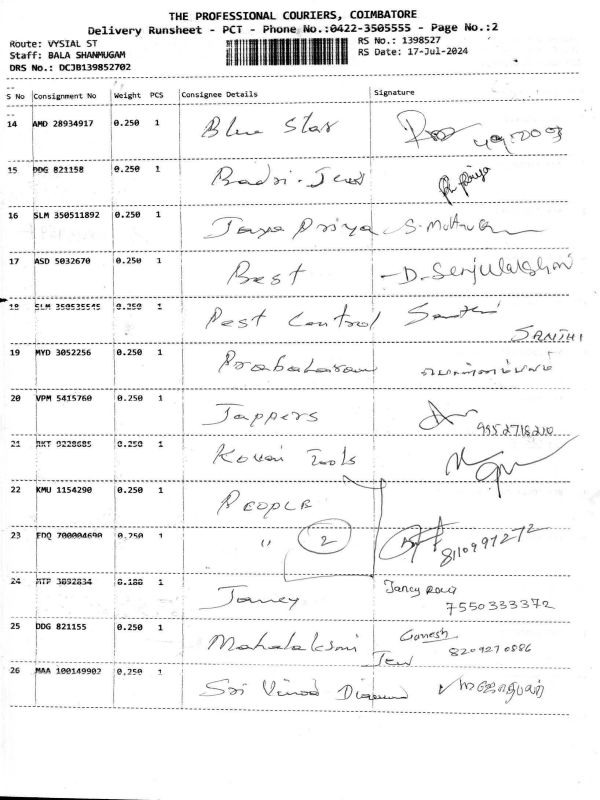 THE PROFESSIONAL COURIERS, COIMBATORE
Delivery Runsheet - PCT - Phone No.:0422-3505555 - Page No.:2
Route: VYSIAL ST RS No.: 1398527
Staff: BALA SHANMUGAM RS Date: 17-Jul-2024
DRS No.: DCJB139852702
S No Consignment No Weight PCS Consignee Details Signature
14 AMD 28934917 0.250 1 Blue Star
15 DDG 821158 0.250 1 Badri. Jew Priya
16 SLM 350511892 0.250 1 Jaya Priya
17 ASD 5032670 0.250 1 Best
18 SLM 350535545 0.250 1 Pest Control
SANTHI
19 MYD 3052256 0.250 1 Prabakaran
20 VPM 5415760 0.250 1 Jappers
21 RKT 9228685 0.250 1 Kovai Tools
22 KMU 1154290 0.250 1 PEOPLE
23 EDQ 700004690 0.250 1 " 2 8110997272
24 RTP 3092834 0.188 1 Jancy
7550333372
25 DDG 821155 0.250 1 Mahalaksmi Jew Ganesh
8209270886
26 MAA 100149902 0.250 1 Sri Vinod